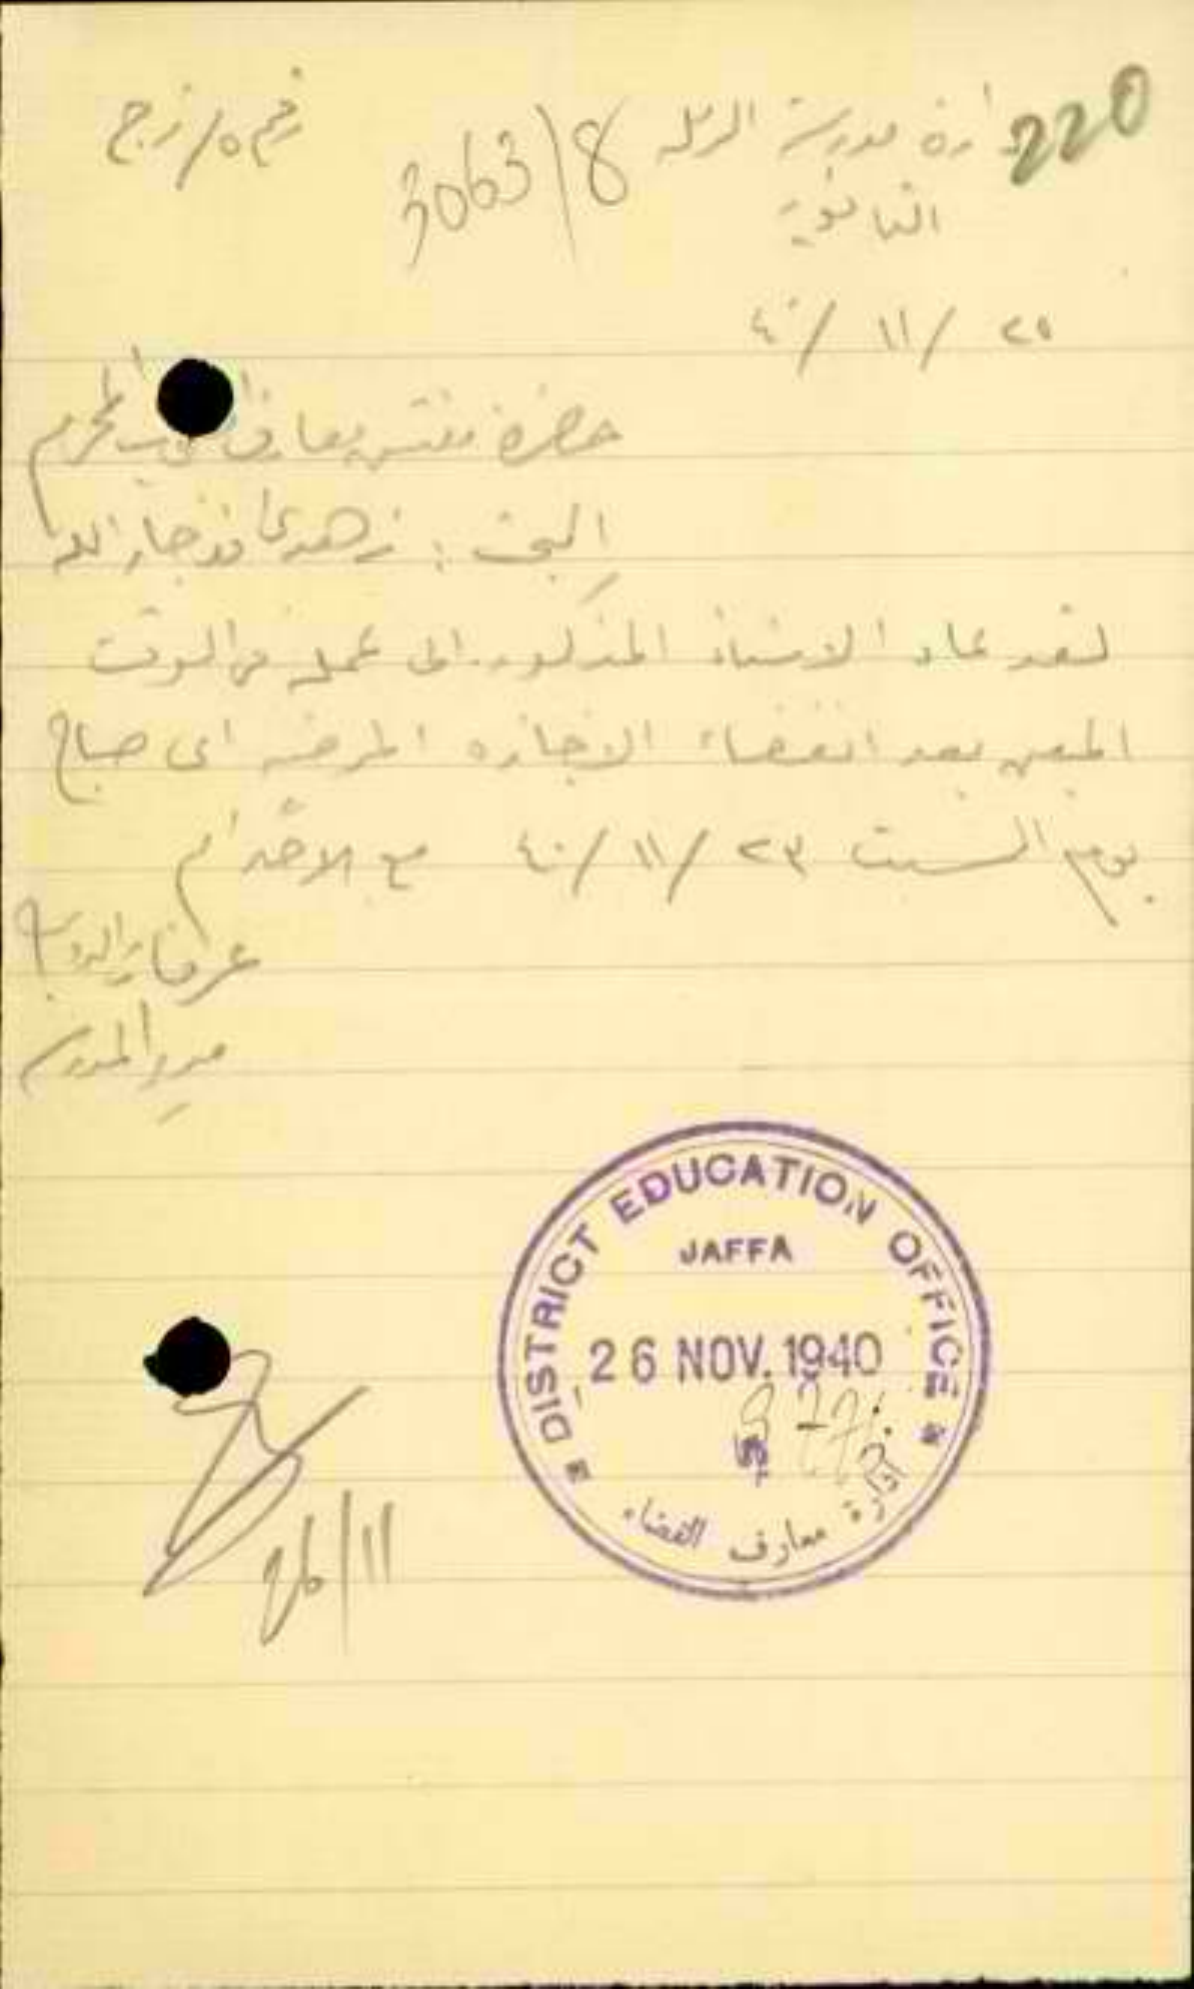 220
ادارة مدرسة الرمله
3063/8
رقم ٥/زج
الثانوية
٢٥ / ١١ / ٤٠
حضرة مفتش معارف المحترم
البحث : زهدي جار الله
لقد عاد الاستاذ المذكور الى عمله في الوقت
المعين بعد انقضاء الاجازه المرضيه اي صباح
يوم السبت ٢٣ / ١١ / ٤٠ مع الاحترام
مدير المدرسة
DISTRICT EDUCATION OFFICE
JAFFA
26 NOV. 1940
ادارة معارف القضاء
26/11